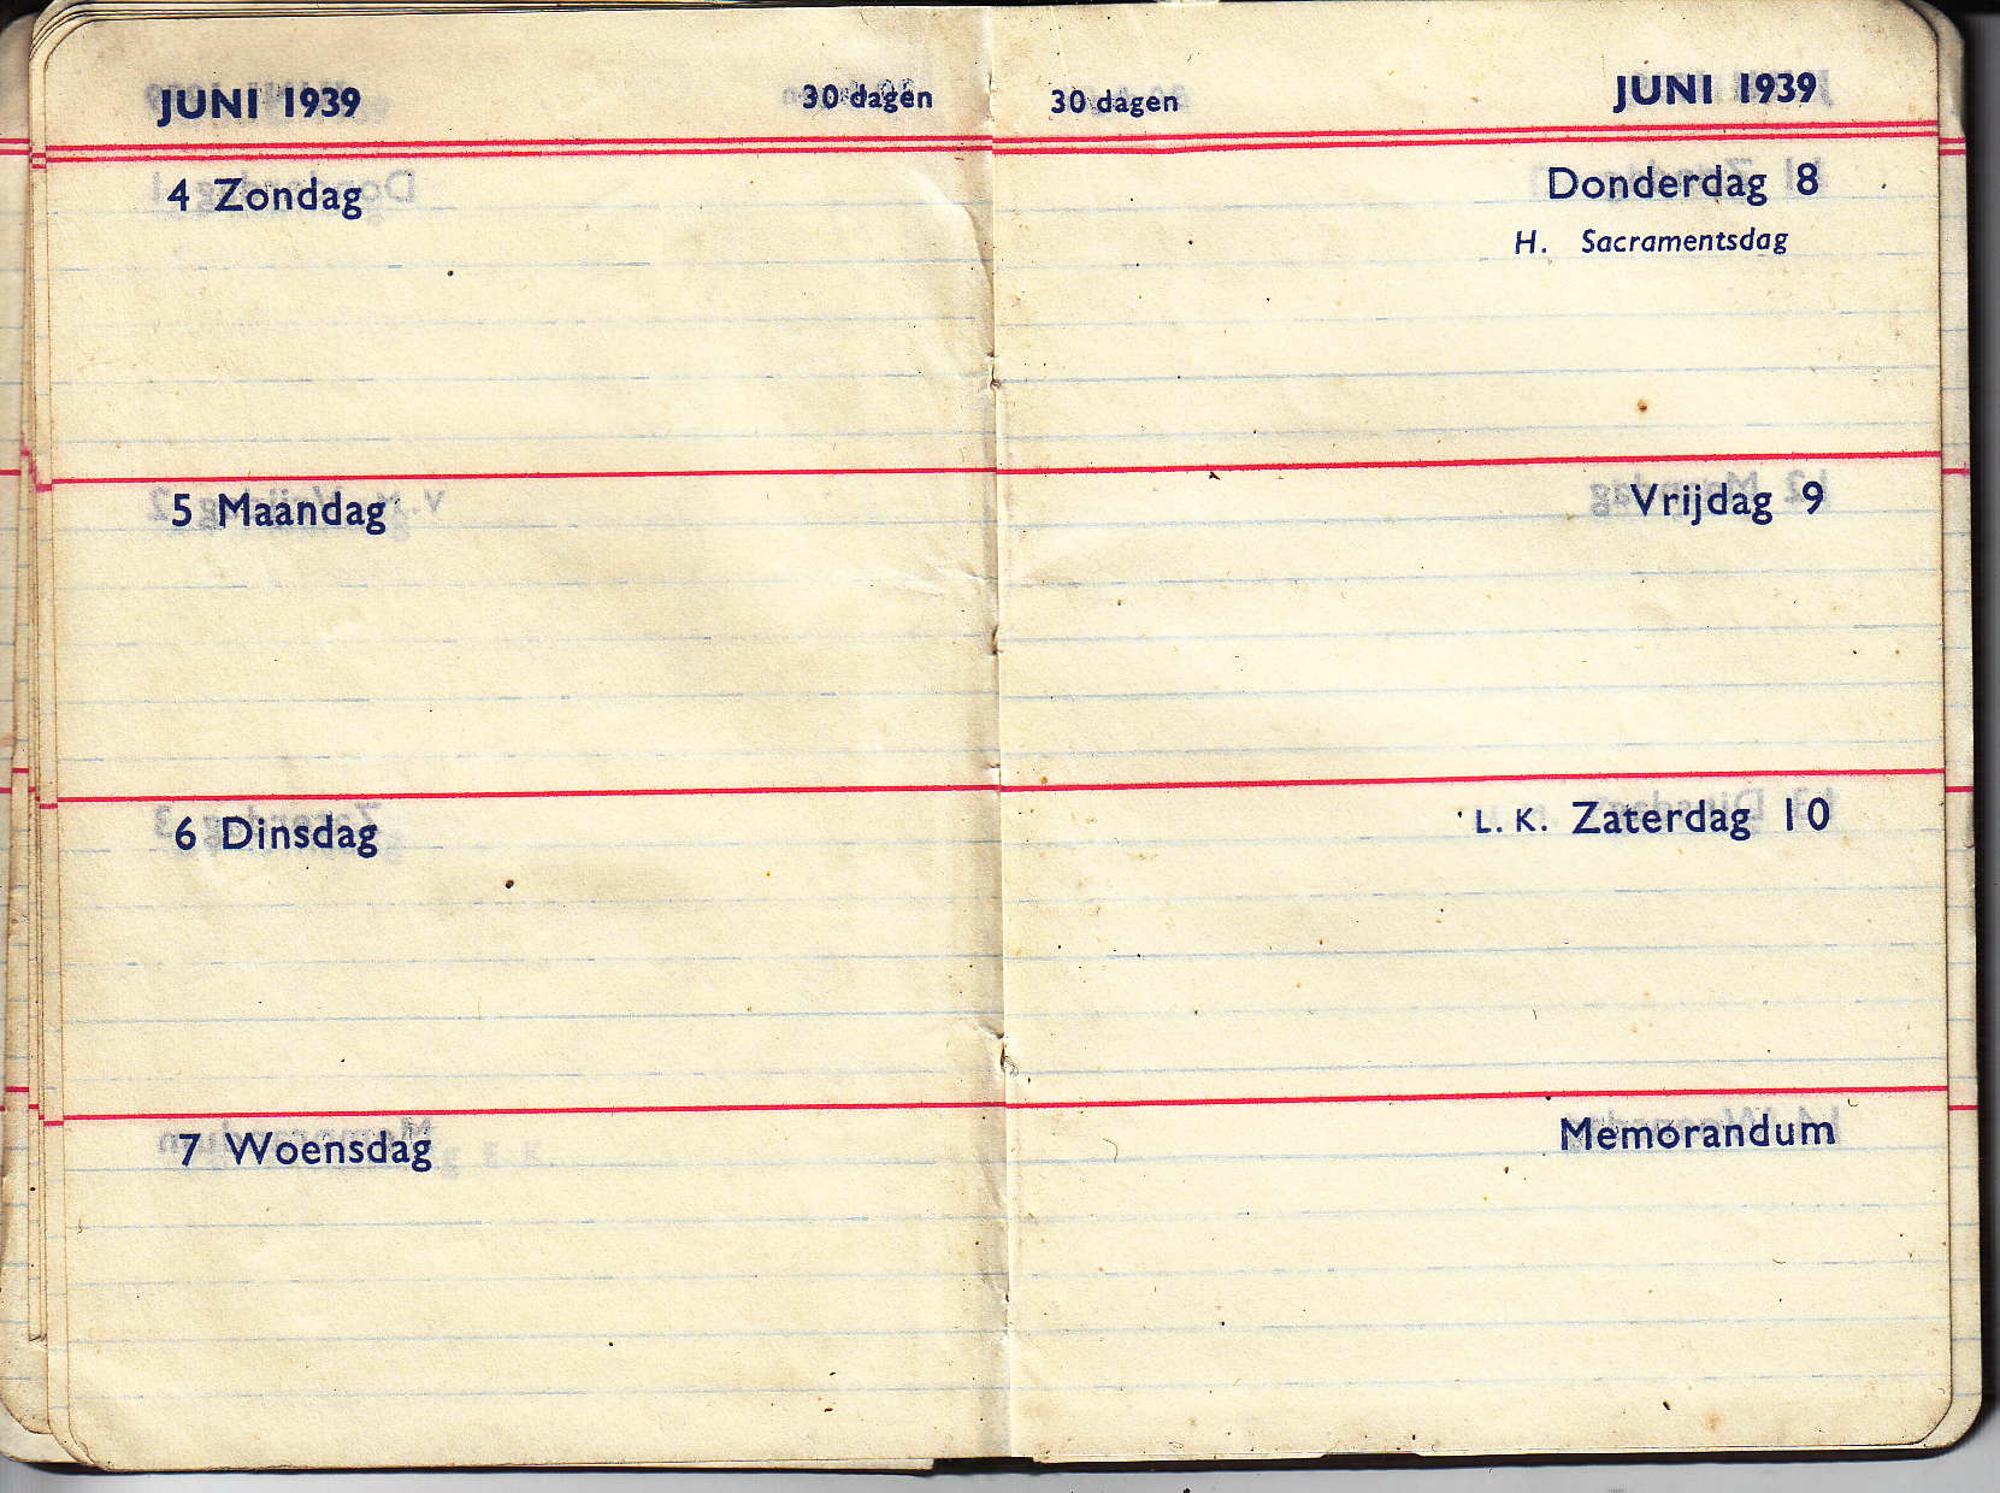 JUNI 1939 30 dagen
4 Zondag
5 Maandag
6 Dinsdag
7 Woensdag
30 dagen JUNI 1939
Donderdag 8
H. Sacramentsdag
Vrijdag 9
L. K. Zaterdag 10
Memorandum